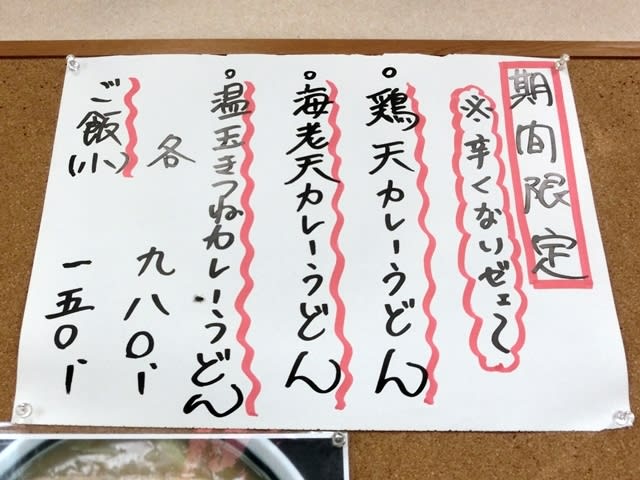 期間限定
※辛くないぜェ〜
。鶏天カレーうどん
。海老天カレーうどん
。温玉きつねカレーうどん
各 九八〇-
ご飯(小) 一五〇-